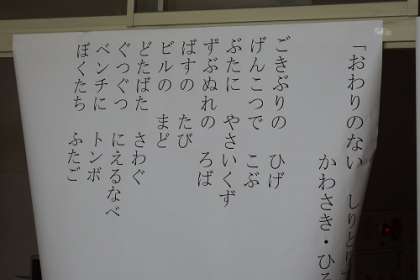 「おわりのない しりとり
かわさき・ひろ
ごきぶりの ひげ
げんこつで こぶ
ぶたに やさいくず
ずぶぬれの ろば
ばすの たび
ビルの まど
どたばた さわぐ
ぐつぐつ にえるなべ
ベンチに トンボ
ぼくたち ふたご